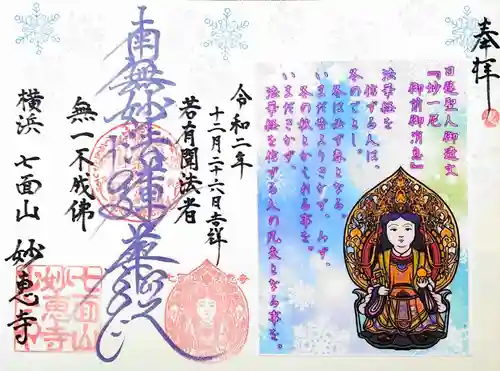 奉拝
日蓮聖人御遺文
『妙一尼
御前御消息』
法華経を
信ずる人は、
冬のごとし。
冬は必ず春となる。
いまだ昔よりきかず、みず、
冬の秋とかへれる事を。
いまだきかず、
法華経を信ずる人の凡夫となる事を。
令和二年
十二月二十六日吉祥
若有聞法者
南無妙法蓮華経
無一不成佛
横浜 七面山 妙恵寺
七面山
妙恵寺